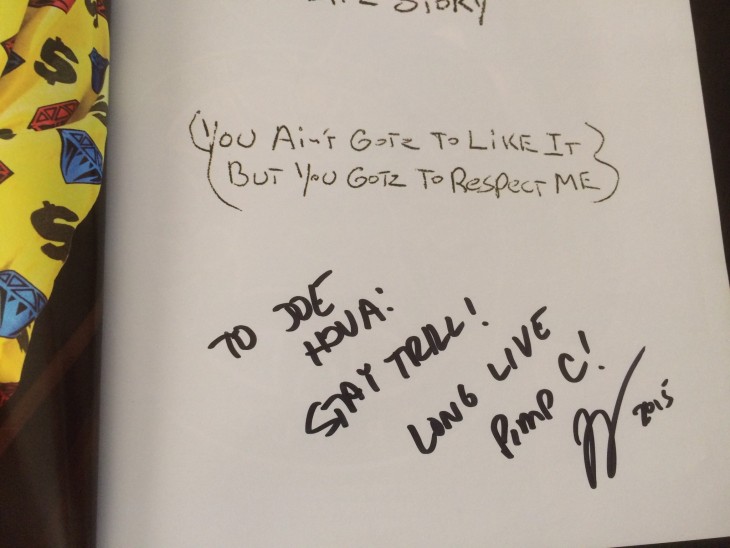 STORY
(YOU AiN'T GOTZ TO LiKE IT
BUT YOU GOTZ TO RespecT ME)
TO JOE
HOVA:
STAY TRILL!
LONG LIVE
PIMP C!
2015